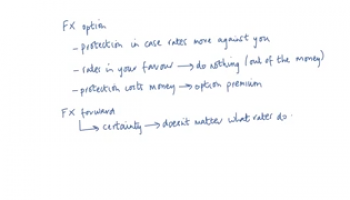 FX option
- protection in case rates move against you
- rates in your favour → do nothing (out of the money)
- protection costs money → option premium
FX forward
↳ certainty → doesn't matter what rates do